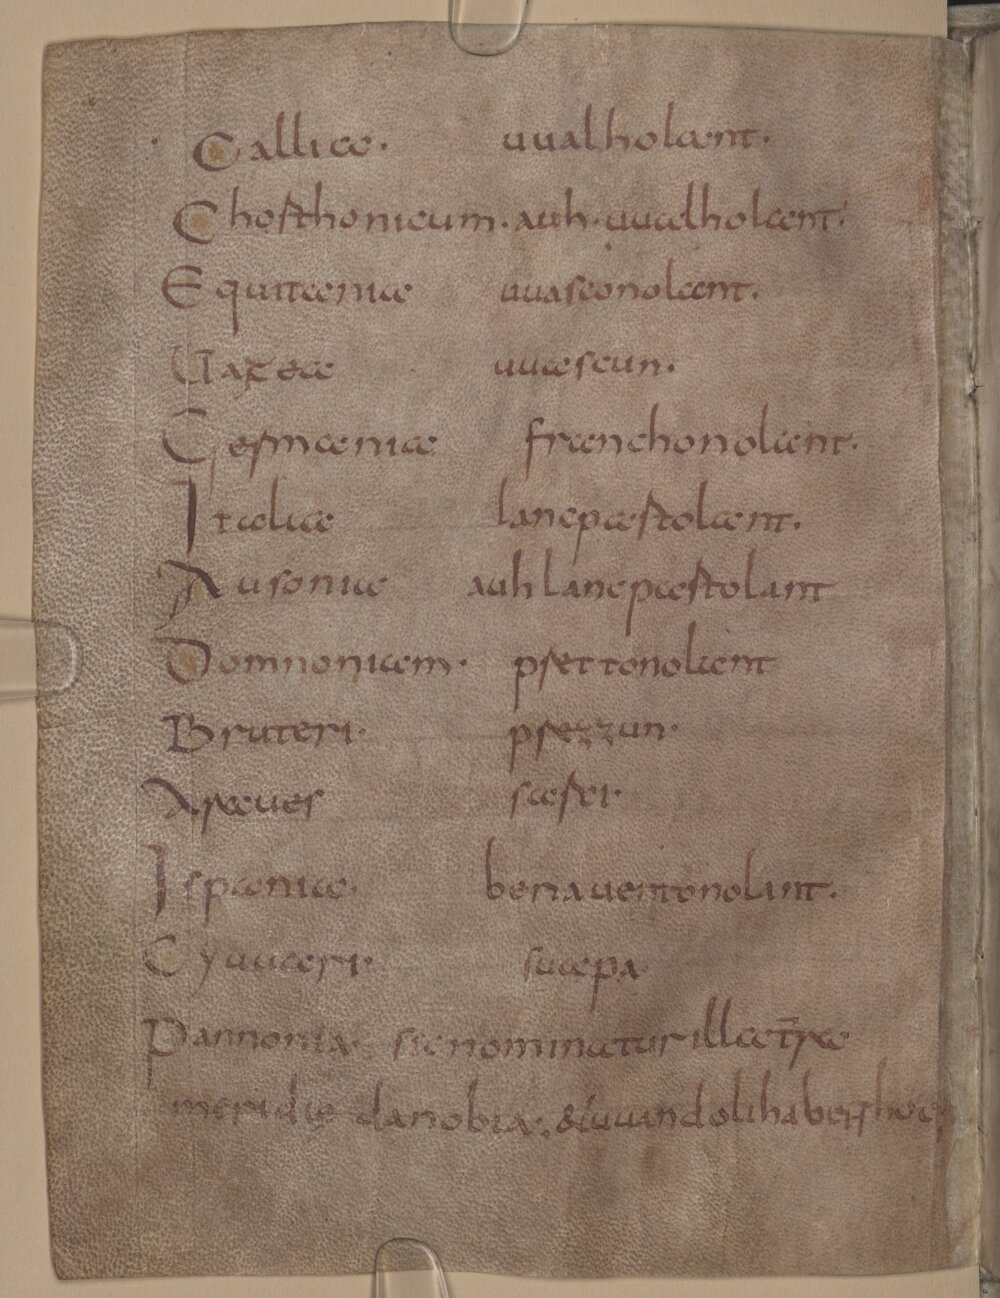 Gallia. uualholant.
Chorthonicum. auh. uualholant.
Equitania uuasconolant.
Uuasconia uuascun.
Germania franchonolant.
Italia lancpartolant.
Ausonia auh lancpartolant
Domnonicam. prettonolant
Bruteri. prezzun.
Arnoues peigiro lant
Ispania. uuentonolant.
Cyuuari. suapa
Pannonia. sic nominatur illa t̅ra
meridie danobia. & uuandoli habent hoc